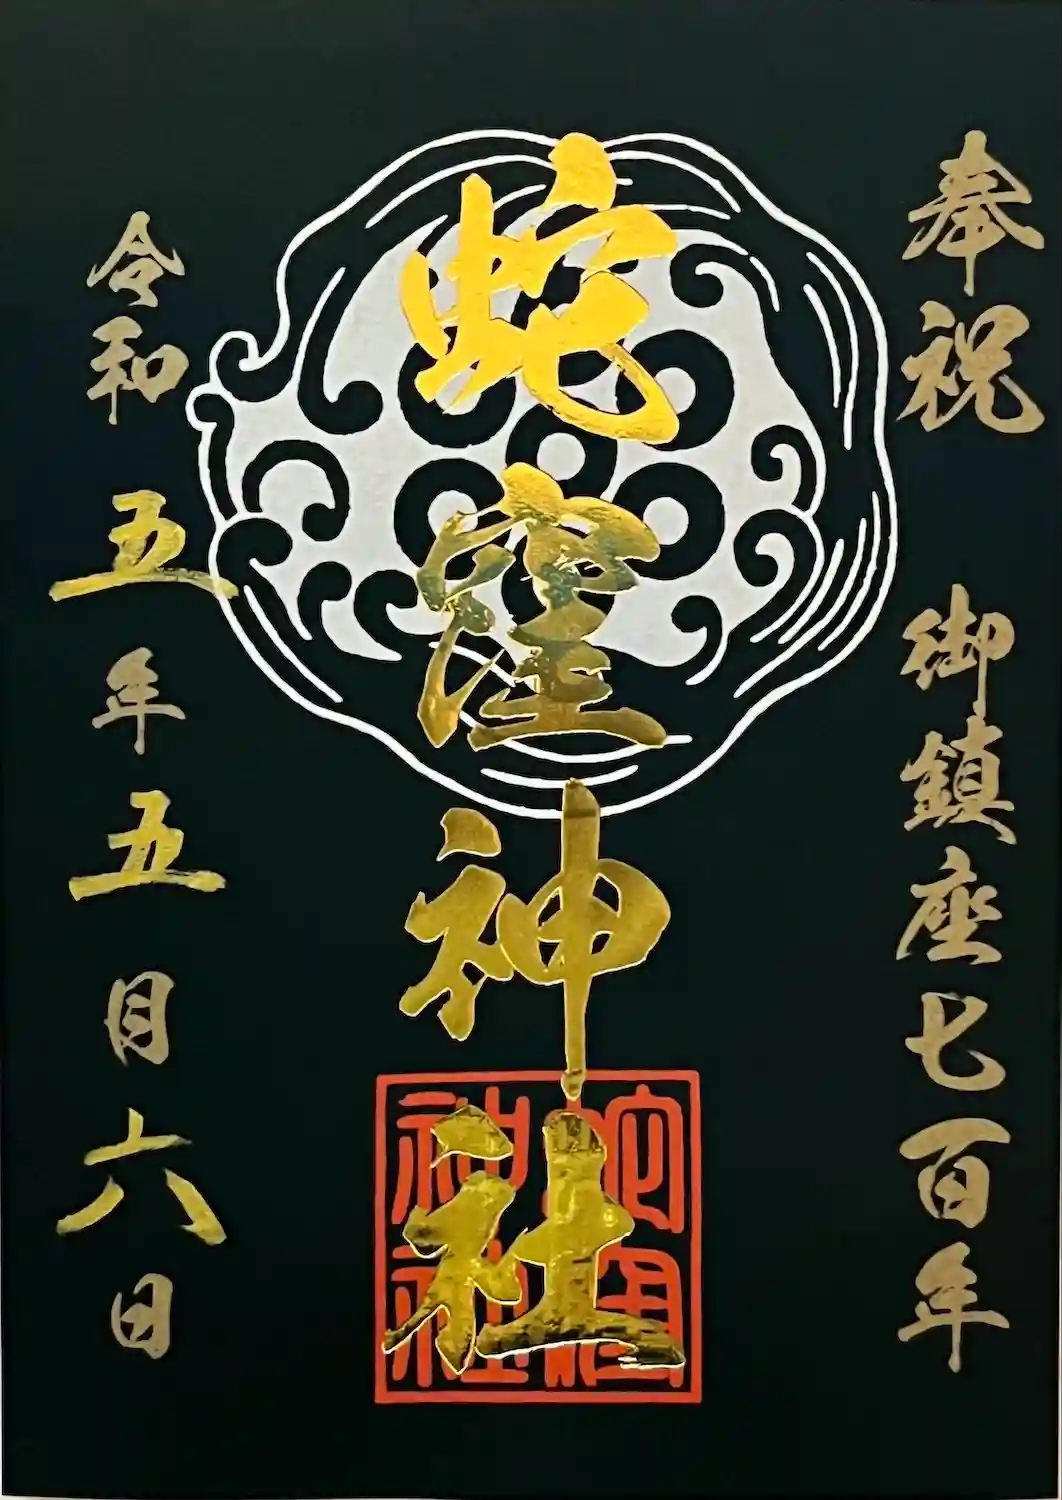 奉祝 御鎮座七百年
蛇窪神社
令和五年五月六日
蛇窪
神社